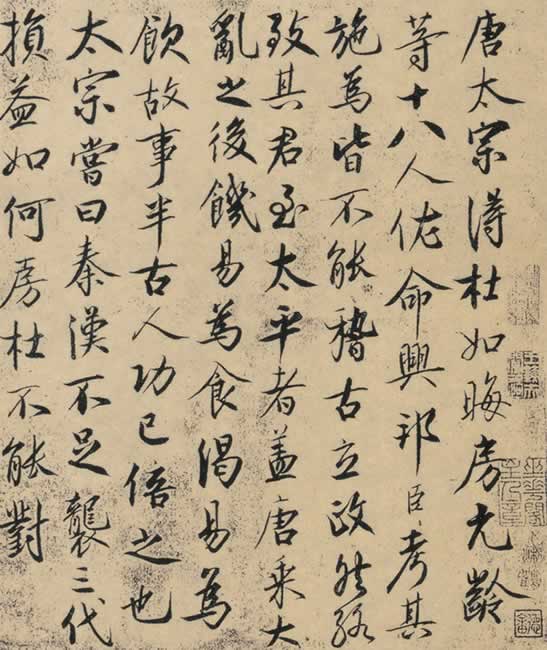 唐太宗得杜如晦房元齡
等十八人佐命興邦臣考其
施為皆不能稽古立政然終
致其君至太平者蓋唐乘大
亂之後饑易為食渴易為
飲故事半古人功已倍之也
太宗嘗曰秦漢不足襲三代
損益如何房杜不能對